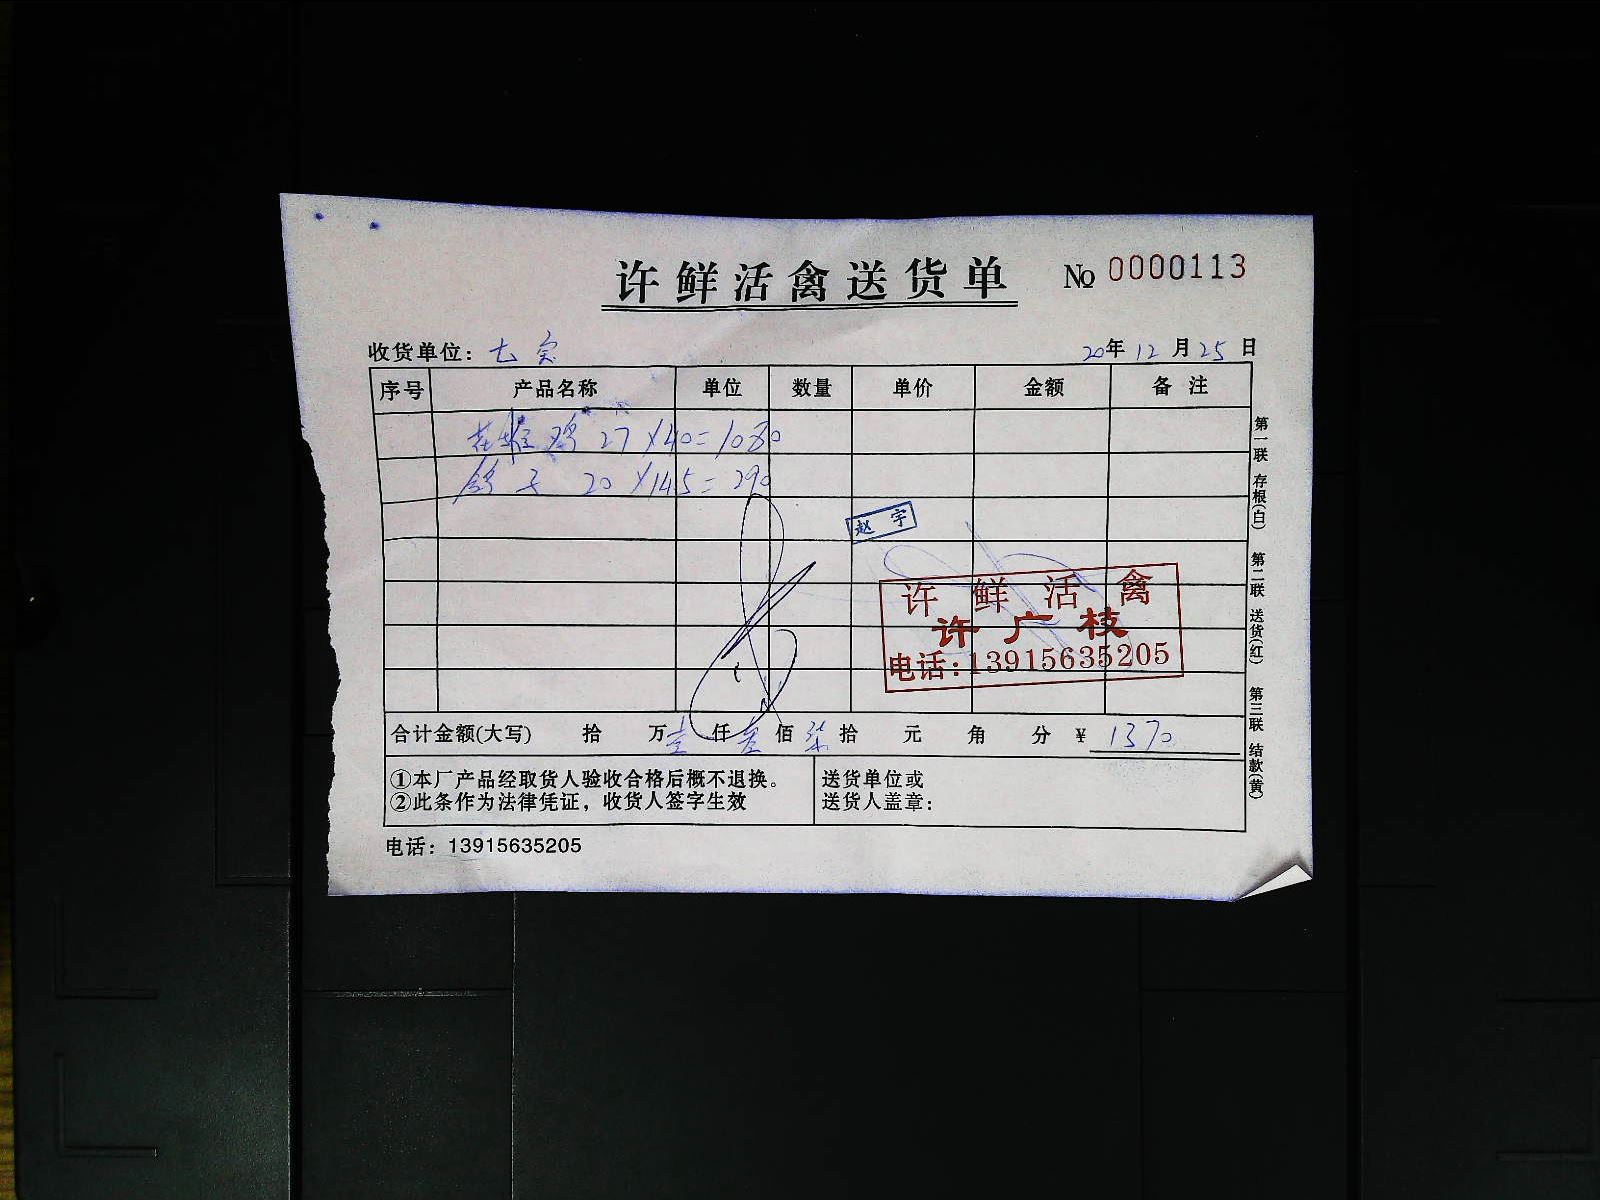 许鲜活禽送货单 № 0000113
收货单位：七宝 20年12月25日
序号 产品名称 单位 数量 单价 金额 备注
鸡 27×40=1080
鸽子 20×14.5=290
赵宇
许鲜活禽
许广枝
电话:13915635205
合计金额(大写) 拾 万壹仟叁佰柒拾 元 角 分 ¥ 1370
①本厂产品经取货人验收合格后概不退换。
②此条作为法律凭证，收货人签字生效
送货单位或
送货人盖章：
电话：13915635205
第一联 存根(白) 第二联 送货(红) 第三联 结款(黄)